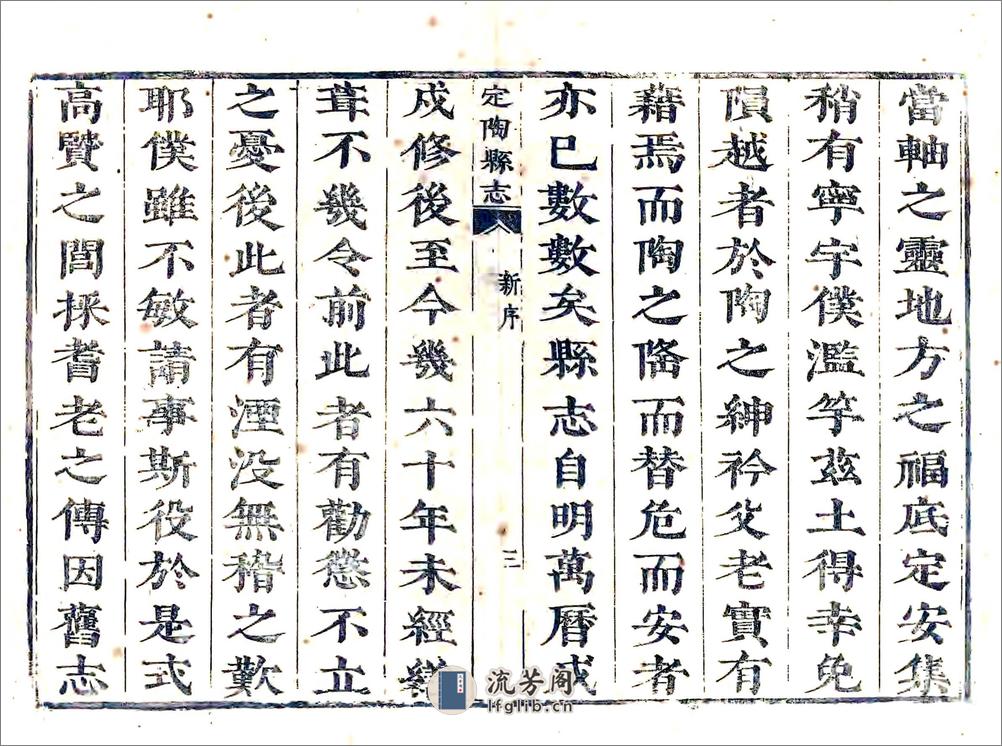 當軸之靈地方之福底定安集
稍有寧宇僕濫竽茲土得幸免
隕越者於陶之紳衿父老實有
藉焉而陶之隆而替危而安者
亦已數數矣縣志自明萬曆戊
定陶縣志
新序
三
戍修後至今幾六十年未經繕
葺不幾令前此者有勸懲不立
之憂後此者有湮没無稽之歎
耶僕雖不敏請事斯役於是式
高賢之閭採耆老之傳因舊志
流芳阁
lfglib.cn